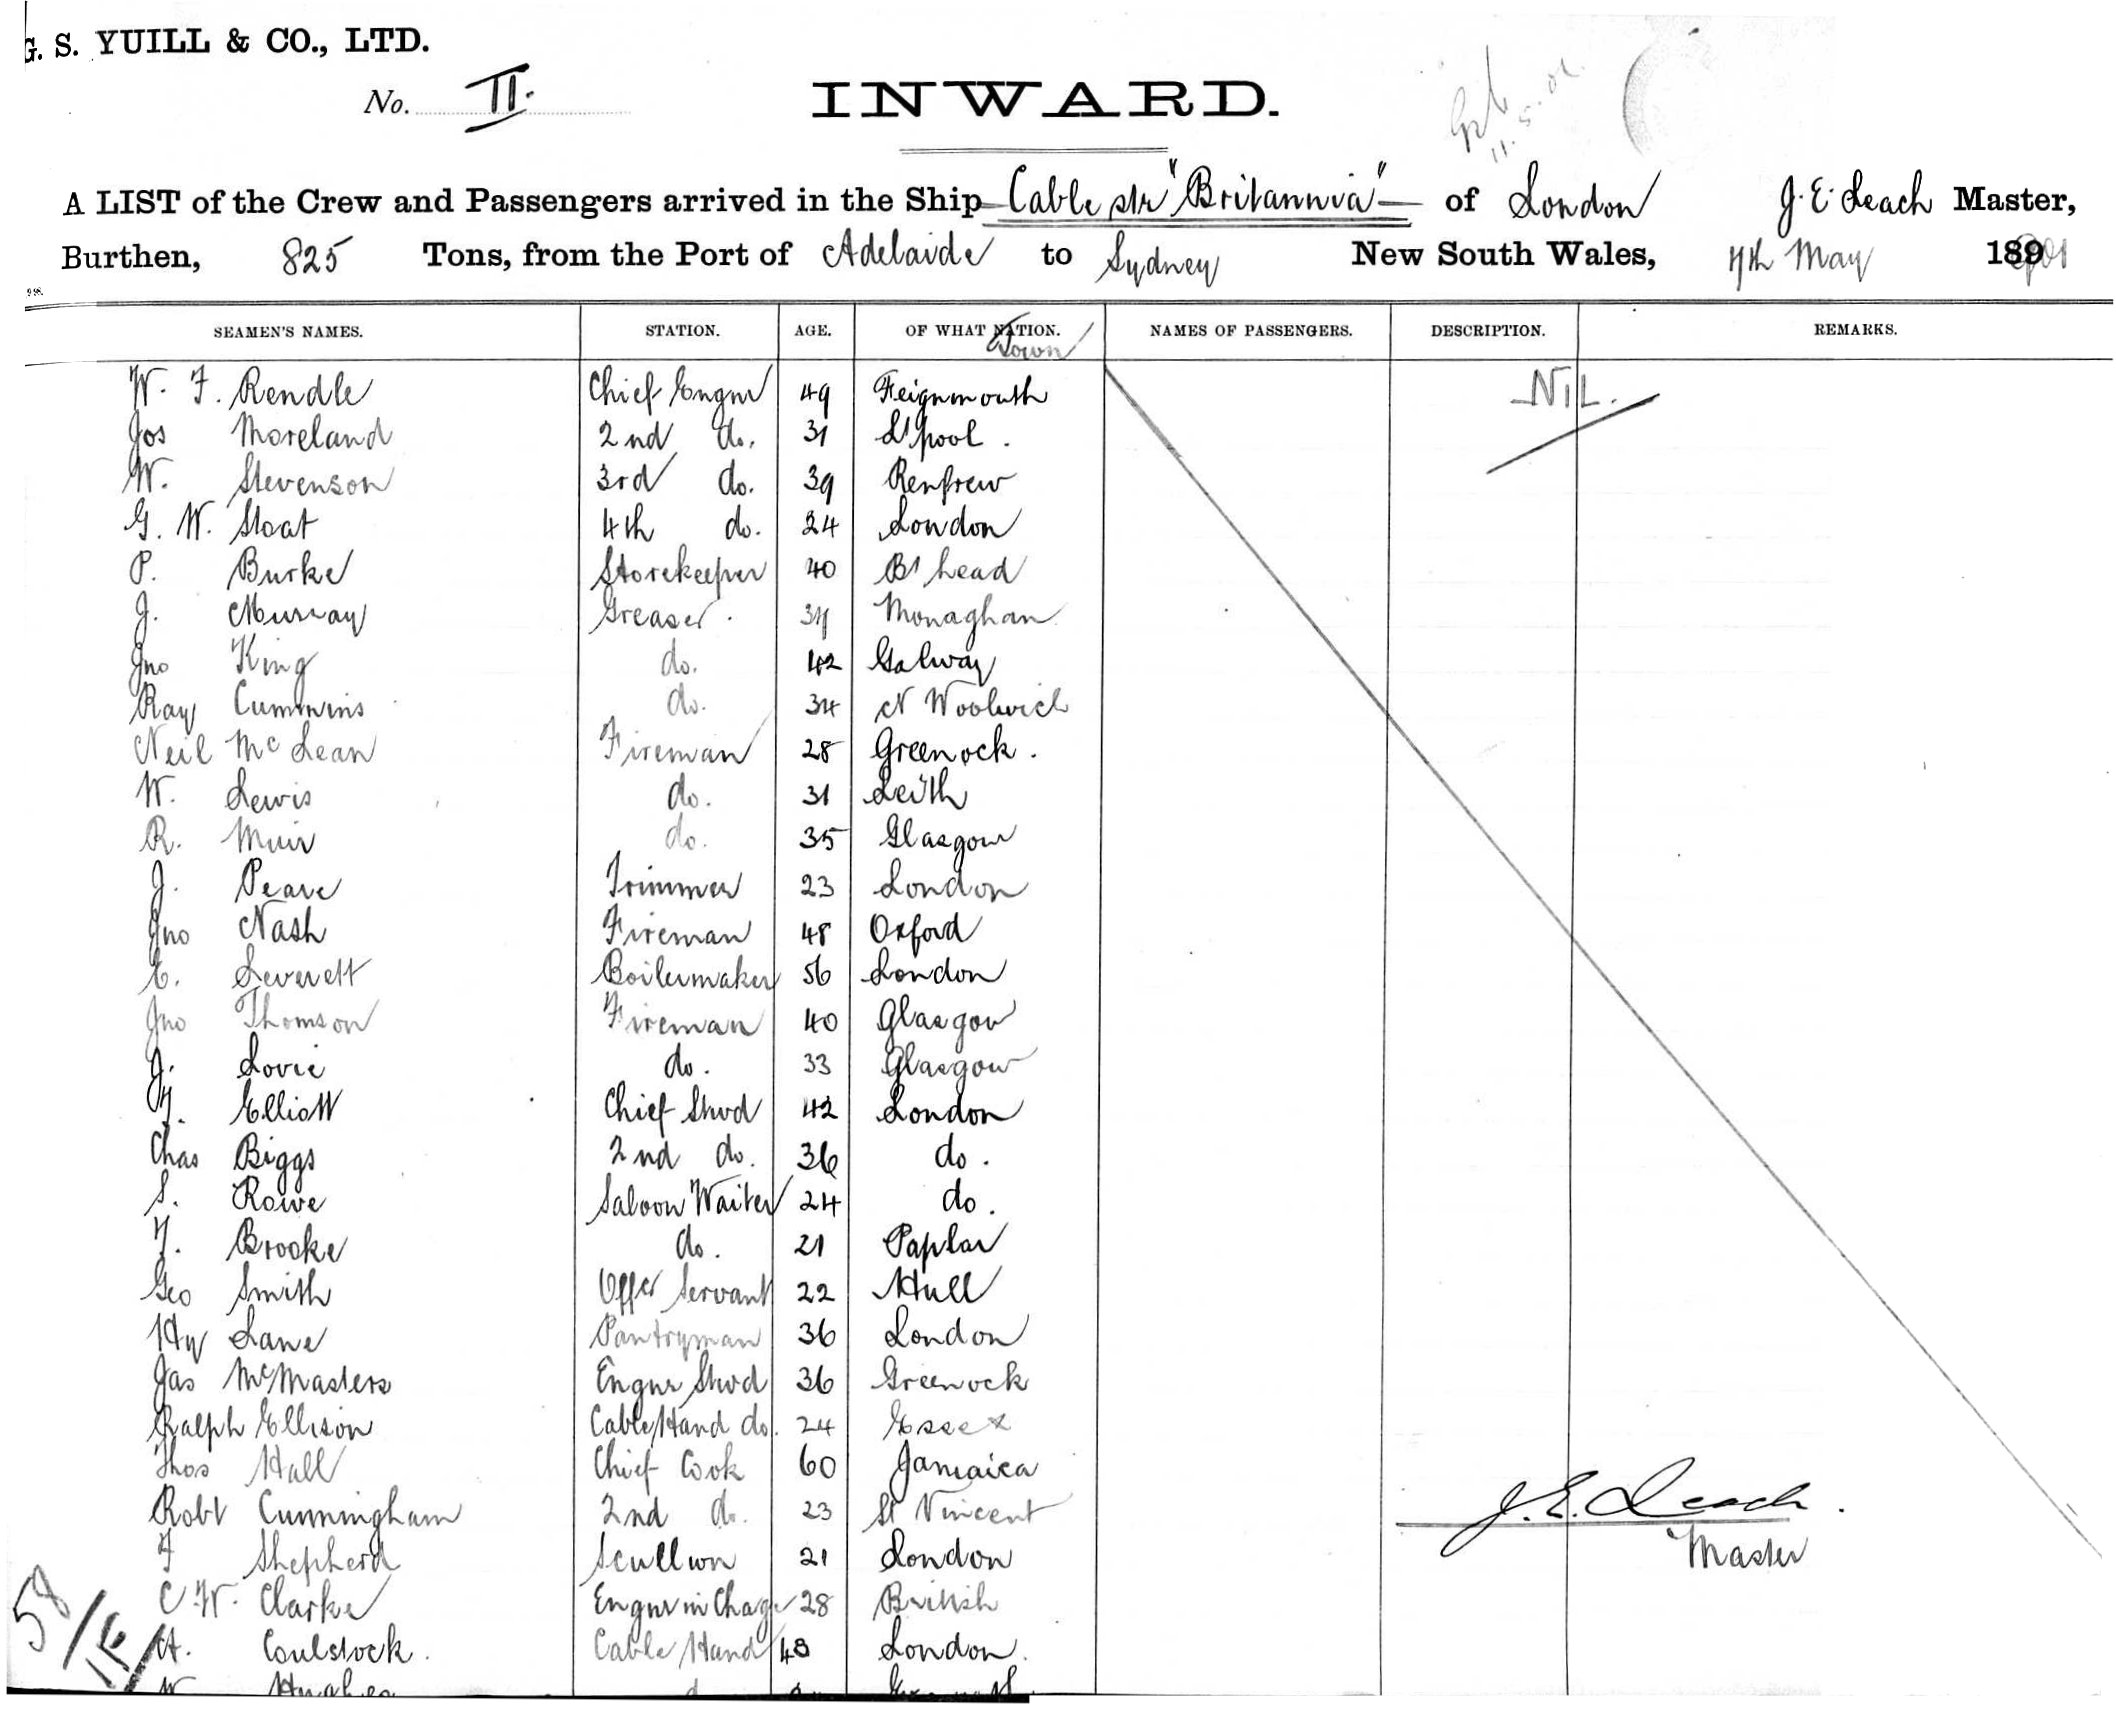 G. S. YUILL & CO., LTD.
No. II.
INWARD.
11.5.01
A LIST of the Crew and Passengers arrived in the Ship Cable str "Britannia" of London J. E. Leach Master,
Burthen, 825 Tons, from the Port of Adelaide to Sydney New South Wales, 11th May 1901
SEAMEN'S NAMES. STATION. AGE. OF WHAT NATION. NAMES OF PASSENGERS. DESCRIPTION. REMARKS.
Town
W. F. Rendle Chief Engnr 49 Teignmouth NIL.
Jos Moreland 2nd do. 31 L'pool.
W. Stevenson 3rd do. 39 Renfrew
G. W. Sloat 4th do. 24 London
P. Burke Storekeeper 40 B'head
J. Murray Greaser. 34 Monaghan
Jno King do. 42 Galway
Ray Cummins do. 34 N Woolwich
Neil McLean Fireman 28 Greenock.
W. Lewis do. 31 Leith
R. Muir do. 35 Glasgow
J. Pearce Trimmer 23 London
Jno Nash Fireman 48 Oxford
E. Leverett Boilermaker 56 London
Jno Thomson Fireman 40 Glasgow
J. Lovie do. 33 Glasgow
Elliott Chief Stwd 42 London
Chas Biggs 2nd do. 36 do.
S. Rowe Saloon Waiter 24 do.
Brooke do. 21 Paplar
Geo Smith Offcr Servant 22 Hull
Hy Lane Pantryman 36 London
Jas McMasters Engnr Stwd 36 Greenock
Ralph Ellison Cable Hand do. 24 Essex
Thos Hall Chief Cook 60 Jamaica
Robt Cunningham 2nd do. 23 St Vincent J. E. Leach.
F Shepherd Scullion 21 London Master
C W. Clarke Engnr in Charge 28 British
A. Coulstock. Cable Hand 48 London.
W Hughes
58